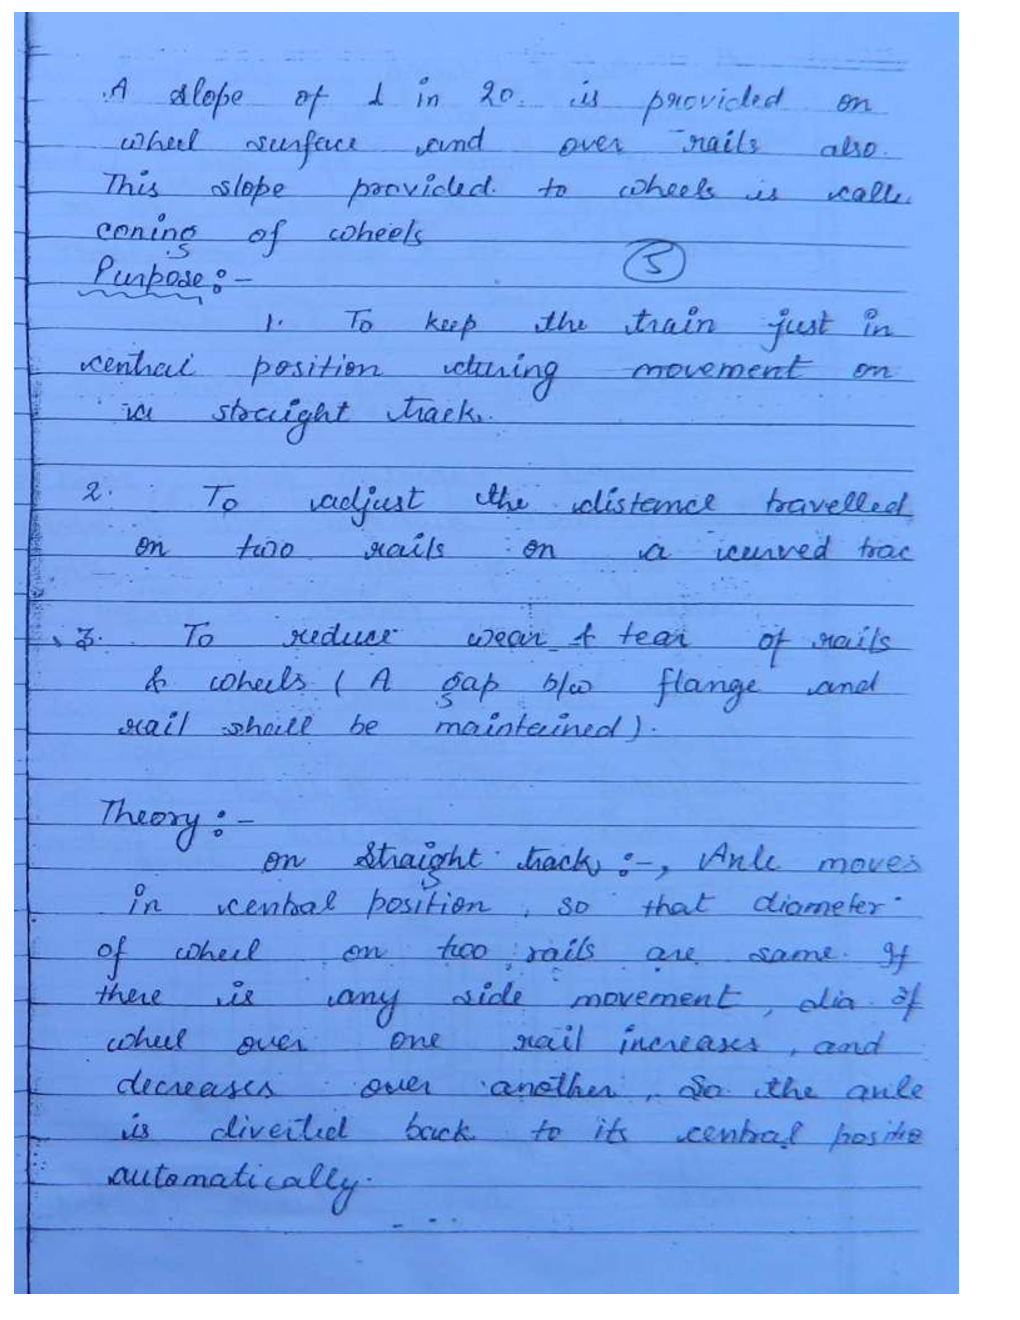 A slope of 1 in 20. is provided on
wheel surface and over rails also.
This slope provided. to wheels is calle
coning of wheels
5
Purpose:-
1. To keep the train just in
central position during movement on
a straight track.
2. To adjust the distance travelled
on two rails on a curved trac
3. To reduce wear & tear of rails
& wheels (A gap b/w flange and
rail shall be maintained).
Theory:-
on straight track:-, Axle moves
in central position, so that diameter
of wheel on two rails are same. If
there is any side movement, dia of
wheel over one rail increases, and
decreases over another, So the axle
is diverted back to its central positio
automatically.